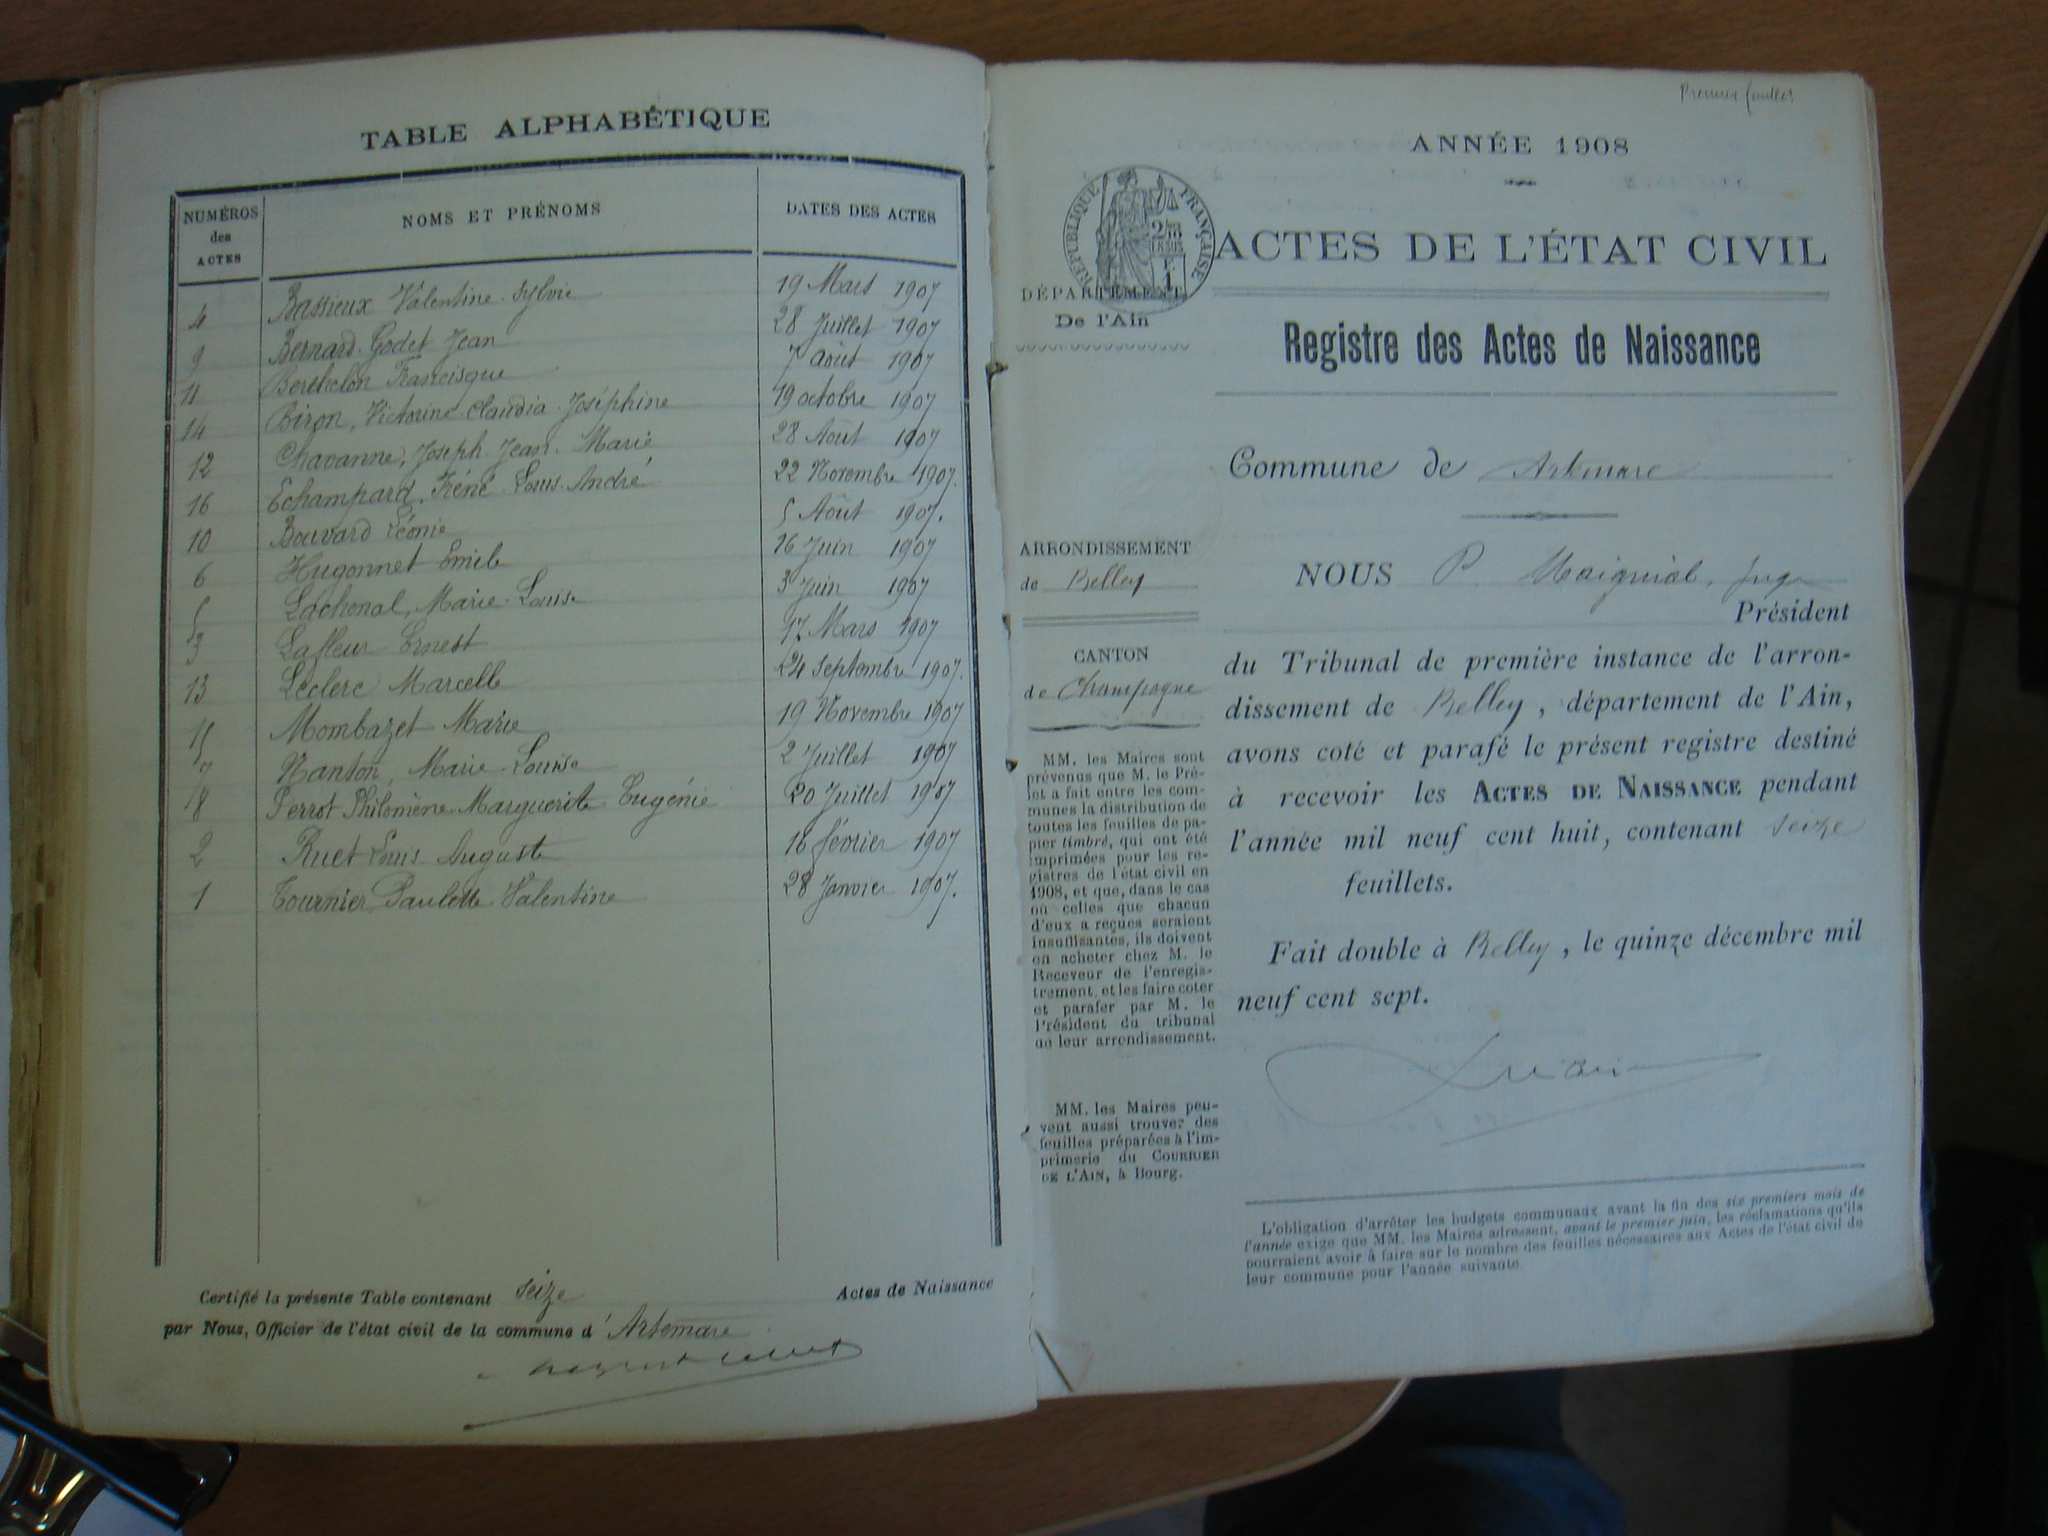 TABLE ALPHABÉTIQUE
NUMÉROS des ACTES NOMS ET PRÉNOMS DATES DES ACTES
4 Bassieux Valentine Sylvie 19 Mars 1907
9 Bernard-Godet Jean 28 Juillet 1907
11 Berthelon Francisque 7 août 1907
14 Biron, Victorine Claudia Joséphine 19 octobre 1907
12 Chavanne, Joseph Jean Marie 28 Août 1907
16 Echampard, Réné Louis André 22 Novembre 1907.
10 Bouvard Léonie 5 Août 1907.
6 Hugonnet Emile 16 Juin 1907
5 Lachenal, Marie Louise 3 Juin 1907
3 Lafleur Ernest 17 Mars 1907
13 Leclerc Marcelle 24 Septembre 1907.
15 Mombazet Marie 19 Novembre 1907
7 Nanton, Marie Louise 2 Juillet 1907
18 Perrot Philomène Marguerite Eugénie 20 Juillet 1907
2 Ruet Louis Auguste 16 février 1907
1 Tournier Paulette Valentine 28 Janvier 1907.
Certifié la présente Table contenant seize Actes de Naissance
par Nous, Officier de l'état civil de la commune d'Artemare
Premier feuillet
ANNÉE 1908
RÉPUBLIQUE FRANÇAISE
ACTES DE L'ÉTAT CIVIL
DÉPARTEMENT
De l'Ain
Registre des Actes de Naissance
Commune de Artemare
ARRONDISSEMENT
de Belley
CANTON
de Champagne
MM. les Maires sont
prévenus que M. le Pré-
fet a fait entre les com-
munes la distribution de
toutes les feuilles de pa-
pier timbré, qui ont été
imprimées pour les re-
gistres de l'état civil en
1908, et que, dans le cas
où celles que chacun
d'eux a reçues seraient
insuffisantes, ils doivent
en acheter chez M. le
Receveur de l'enregis-
trement, et les faire coter
et parafer par M. le
Président du tribunal
de leur arrondissement.
MM. les Maires peu-
vent aussi trouver des
feuilles préparées à l'im-
primerie du COURRIER
DE L'AIN, à Bourg.
NOUS P. juge
Président
du Tribunal de première instance de l'arron-
dissement de Belley, département de l'Ain,
avons coté et parafé le présent registre destiné
à recevoir les ACTES DE NAISSANCE pendant
l'année mil neuf cent huit, contenant seize
feuillets.
Fait double à Belley, le quinze décembre mil
neuf cent sept.
L'obligation d'arrêter les budgets communaux avant la fin des six premiers mois de
l'année exige que MM. les Maires adressent, avant le premier juin, les réclamations qu'ils
pourraient avoir à faire sur le nombre des feuilles nécessaires aux Actes de l'état civil de
leur commune pour l'année suivante.